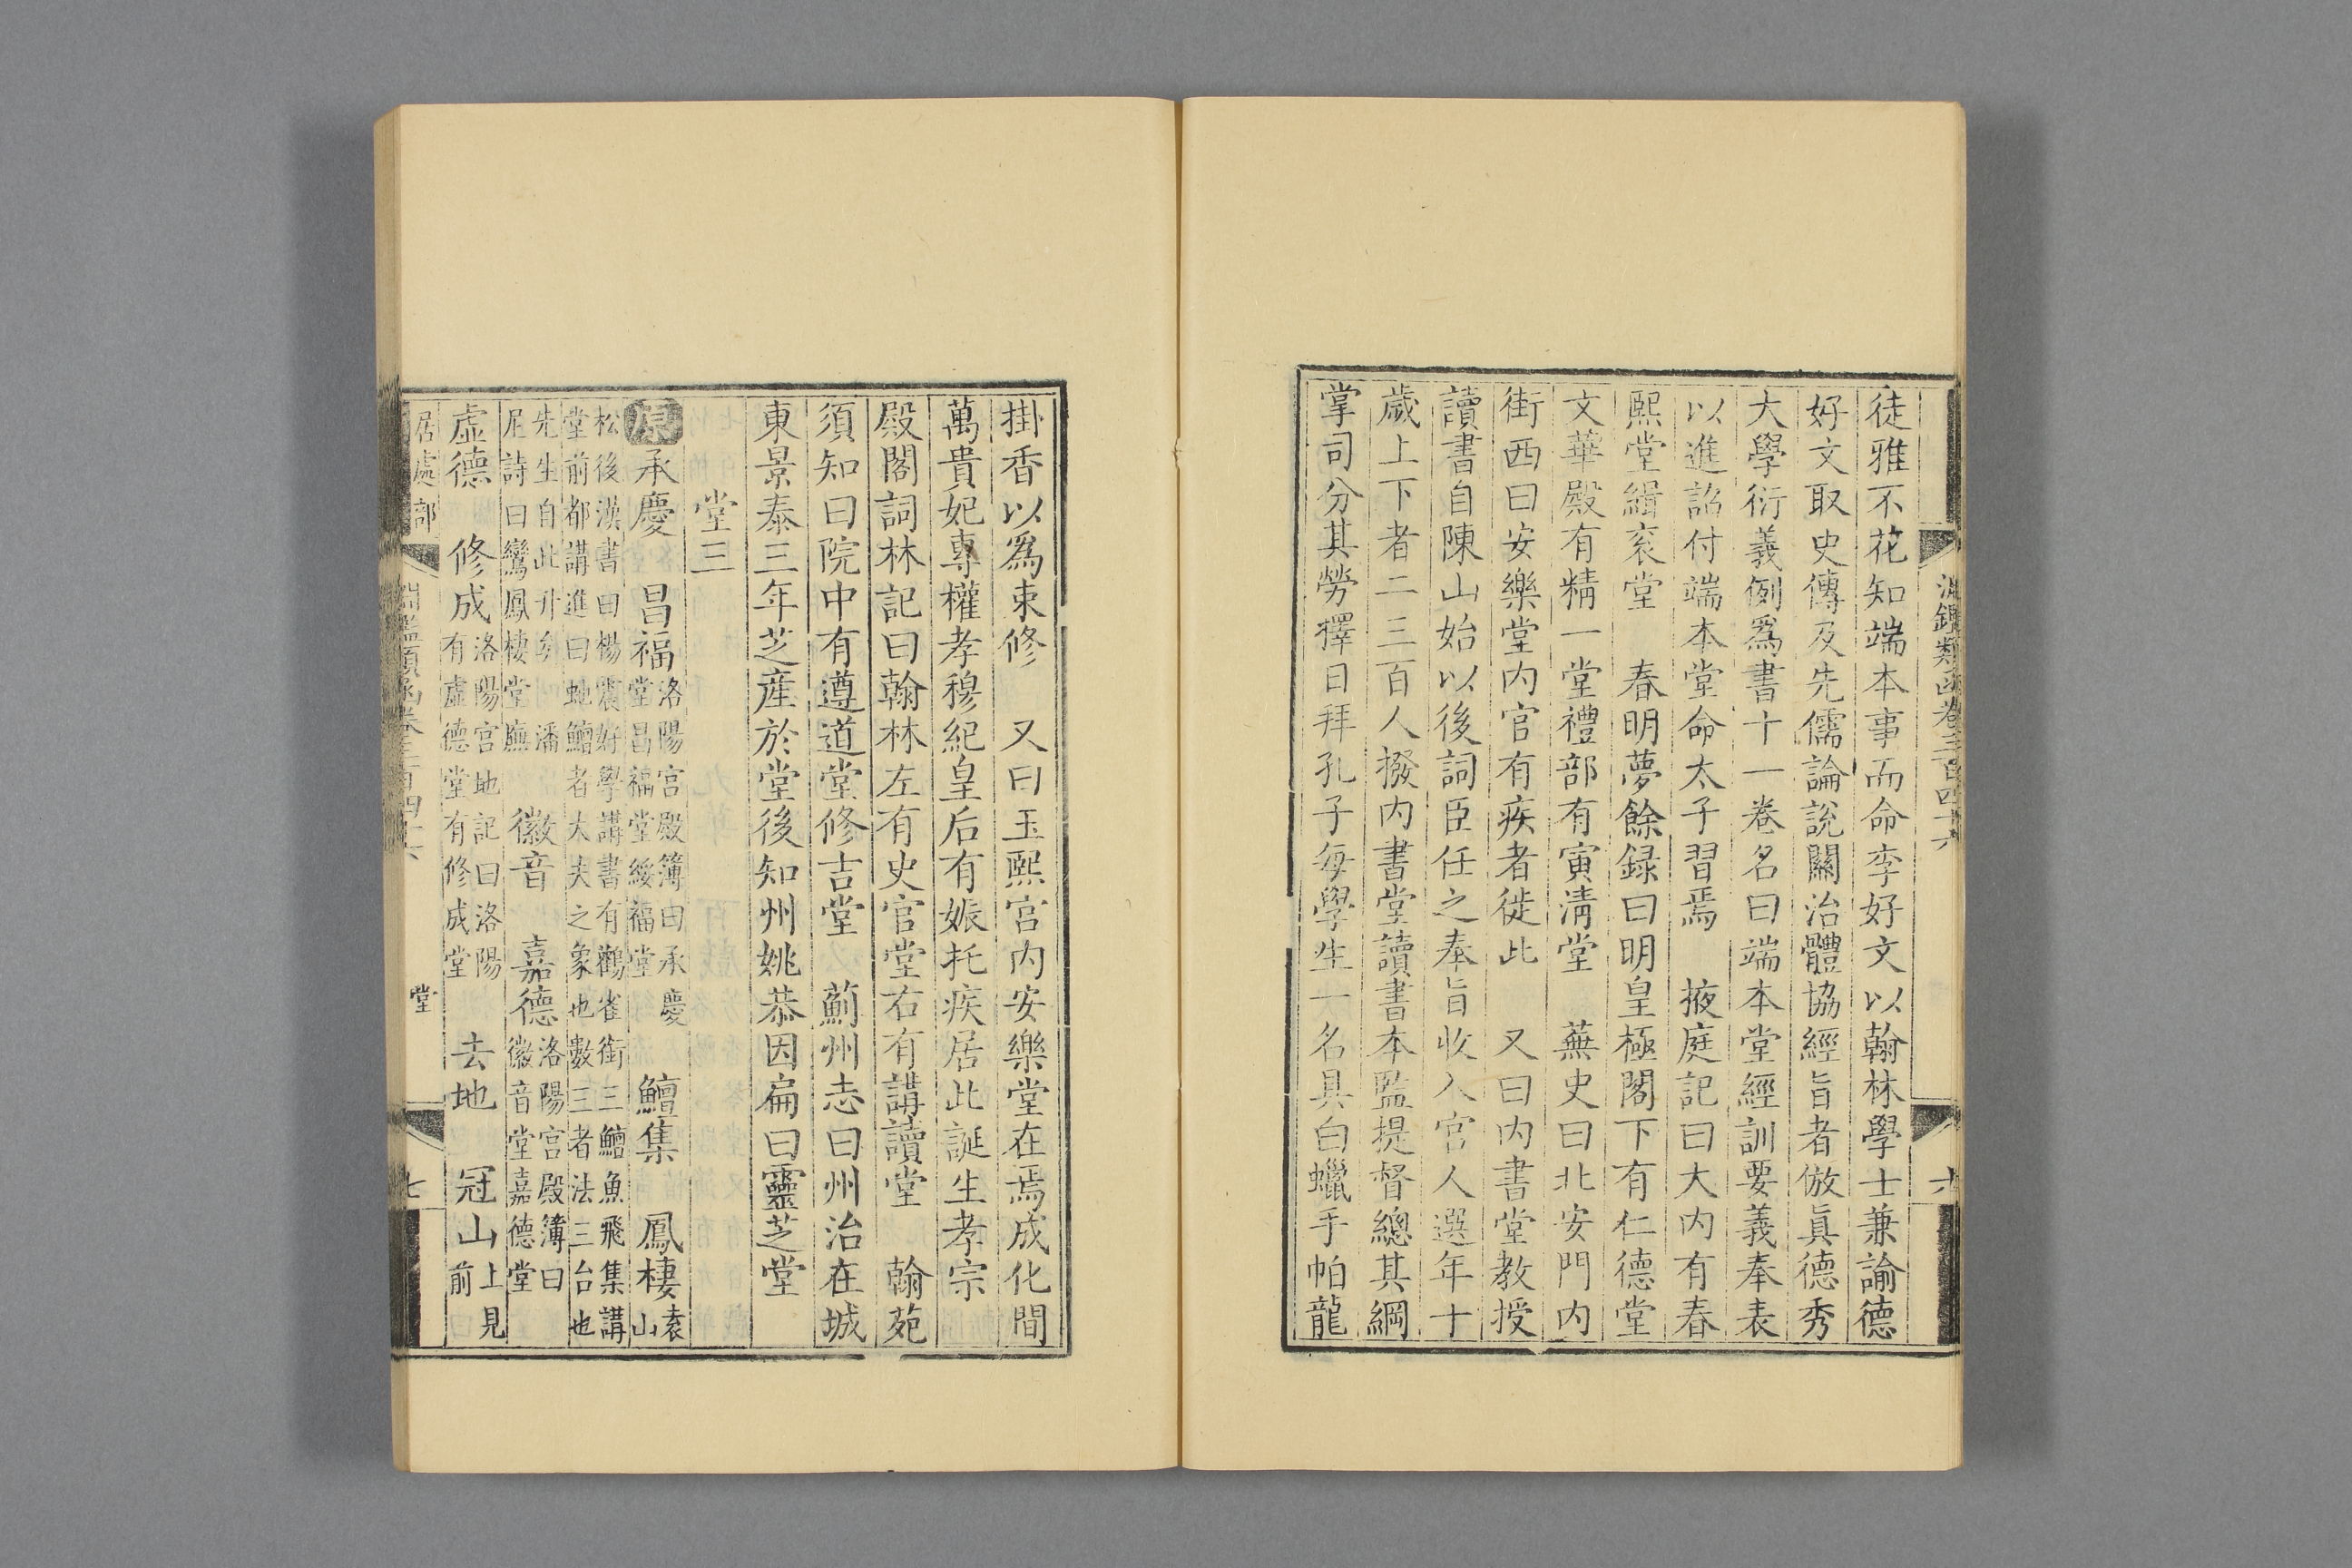 淵鑑類函卷三百四十六
六
徒雅不花知端本事而命李好文以翰林學士兼諭德
好文取史傳及先儒論說關治體協經旨者倣眞德秀
大學衍義例爲書十一卷名曰端本堂經訓要義奉表
以進詔付端本堂命太子習焉　掖庭記曰大內有春
熙堂緝衮堂　春明夢餘録曰明皇極閣下有仁德堂
文華殿有精一堂禮部有寅淸堂　蕪史曰北安門內
街西曰安樂堂內官有疾者徙此　又曰內書堂教授
讀書自陳山始以後詞臣任之奉旨收入宮人選年十
歲上下者二三百人撥內書堂讀書本監提督總其綱
掌司分其勞擇日拜孔子每學生一名具白蠟手帕龍
掛香以爲束修　又曰玉熙宮內安樂堂在焉成化間
萬貴妃專權孝穆紀皇后有娠托疾居此誕生孝宗
殿閣詞林記曰翰林左有史官堂右有講讀堂　翰苑
須知曰院中有遵道堂修吉堂　薊州志曰州治在城
東景泰三年芝産於堂後知州姚恭因扁曰靈芝堂
堂三
原　承慶　昌福 洛陽宮殿簿曰承慶堂昌福堂綏福堂　鱣集　鳳棲 袁山
松後漢書曰楊震好學講書有鸛雀銜三鱣魚飛集講堂前都講進曰虵鱣者大夫之象也數三者法三台也
先生自此升矣　潘尼詩曰鸞鳳棲堂廡　徽音　嘉德 洛陽宮殿簿曰徽音堂嘉德堂
虛德　修成 洛陽宮地記曰洛陽有虛德堂有修成堂　去地　冠山 上見前
居處部
淵鑑類函卷三百四十六
堂
七